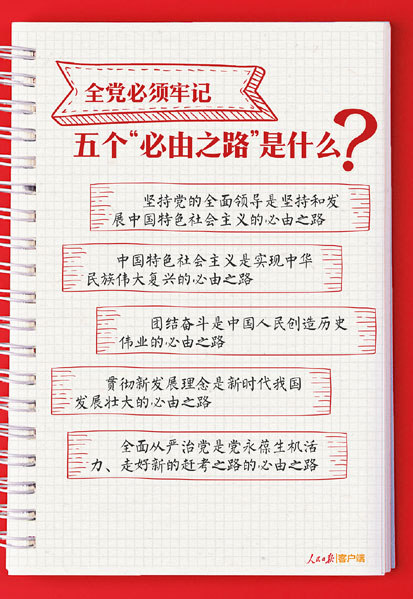 全党必须牢记
五个“必由之路”是什么?
坚持党的全面领导是坚持和发
展中国特色社会主义的必由之路
中国特色社会主义是实现中华
民族伟大复兴的必由之路
团结奋斗是中国人民创造历史
伟业的必由之路
贯彻新发展理念是新时代我国
发展壮大的必由之路
全面从严治党是党永葆生机活
力、走好新的赶考之路的必由之路
人民日报|客户端